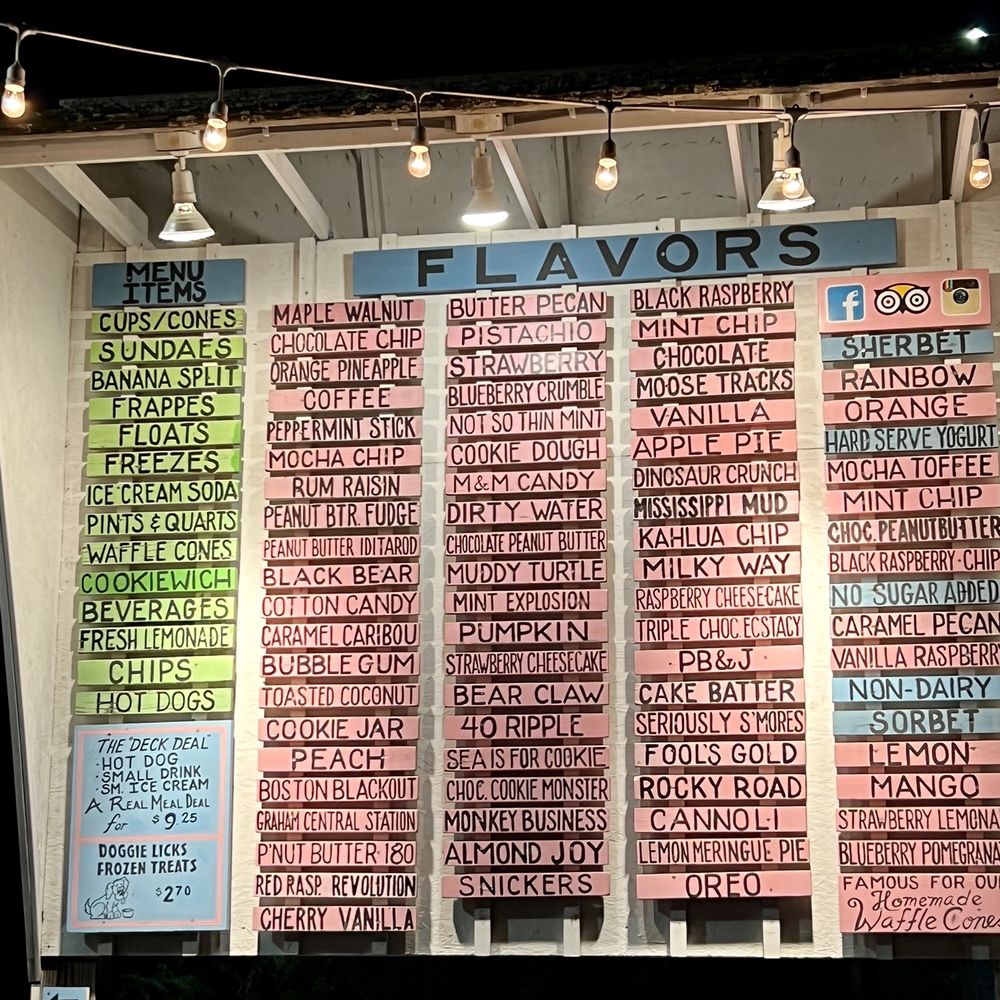 MENU
ITEMS
CUPS/CONES
SUNDAES
BANANA SPLIT
FRAPPES
FLOATS
FREEZES
ICE CREAM SODA
PINTS & QUARTS
WAFFLE CONES
COOKIEWICH
BEVERAGES
FRESH LEMONADE
CHIPS
HOT DOGS
THE "DECK DEAL"
· HOT DOG
· SMALL DRINK
· SM. ICE CREAM
A REAL MEAL DEAL
for $9.25
DOGGIE LICKS
FROZEN TREATS
$2.70
FLAVORS
MAPLE WALNUT
CHOCOLATE CHIP
ORANGE PINEAPPLE
COFFEE
PEPPERMINT STICK
MOCHA CHIP
RUM RAISIN
PEANUT BTR. FUDGE
PEANUT BUTTER IDITAROD
BLACK BEAR
COTTON CANDY
CARAMEL CARIBOU
BUBBLE GUM
TOASTED COCONUT
COOKIE JAR
PEACH
BOSTON BLACKOUT
GRAHAM CENTRAL STATION
P'NUT BUTTER·180
RED RASP. REVOLUTION
CHERRY VANILLA
BUTTER PECAN
PISTACHIO
STRAWBERRY
BLUEBERRY CRUMBLE
NOT SO THIN MINT
COOKIE DOUGH
M&M CANDY
DIRTY WATER
CHOCOLATE PEANUT BUTTER
MUDDY TURTLE
MINT EXPLOSION
PUMPKIN
STRAWBERRY CHEESECAKE
BEAR CLAW
40 RIPPLE
SEA IS FOR COOKIE
CHOC. COOKIE MONSTER
MONKEY BUSINESS
ALMOND JOY
SNICKERS
BLACK RASPBERRY
MINT CHIP
CHOCOLATE
MOOSE TRACKS
VANILLA
APPLE PIE
DINOSAUR CRUNCH
MISSISSIPPI MUD
KAHLUA CHIP
MILKY WAY
RASPBERRY CHEESECAKE
TRIPLE CHOC. ECSTACY
PB&J
CAKE BATTER
SERIOUSLY S'MORES
FOOL'S GOLD
ROCKY ROAD
CANNOLI
LEMON MERINGUE PIE
OREO
f
SHERBET
RAINBOW
ORANGE
HARD SERVE YOGURT
MOCHA TOFFEE
MINT CHIP
CHOC. PEANUT BUTTER
BLACK RASPBERRY·CHIP
NO SUGAR ADDED
CARAMEL PECAN
VANILLA RASPBERRY
NON-DAIRY
SORBET
LEMON
MANGO
STRAWBERRY LEMONA
BLUEBERRY POMEGRANA
FAMOUS FOR OU
Homemade
Waffle Cones